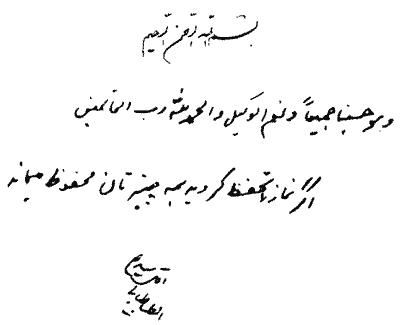 بسم الله الرحمن الرحیم
و هو حسبنا جمیعاً و نعم الوکیل و الحمد لله رب العالمین
اگر نماز را تحفظ کردید همه چیزتان محفوظ میماند
سید
الطباطبایی